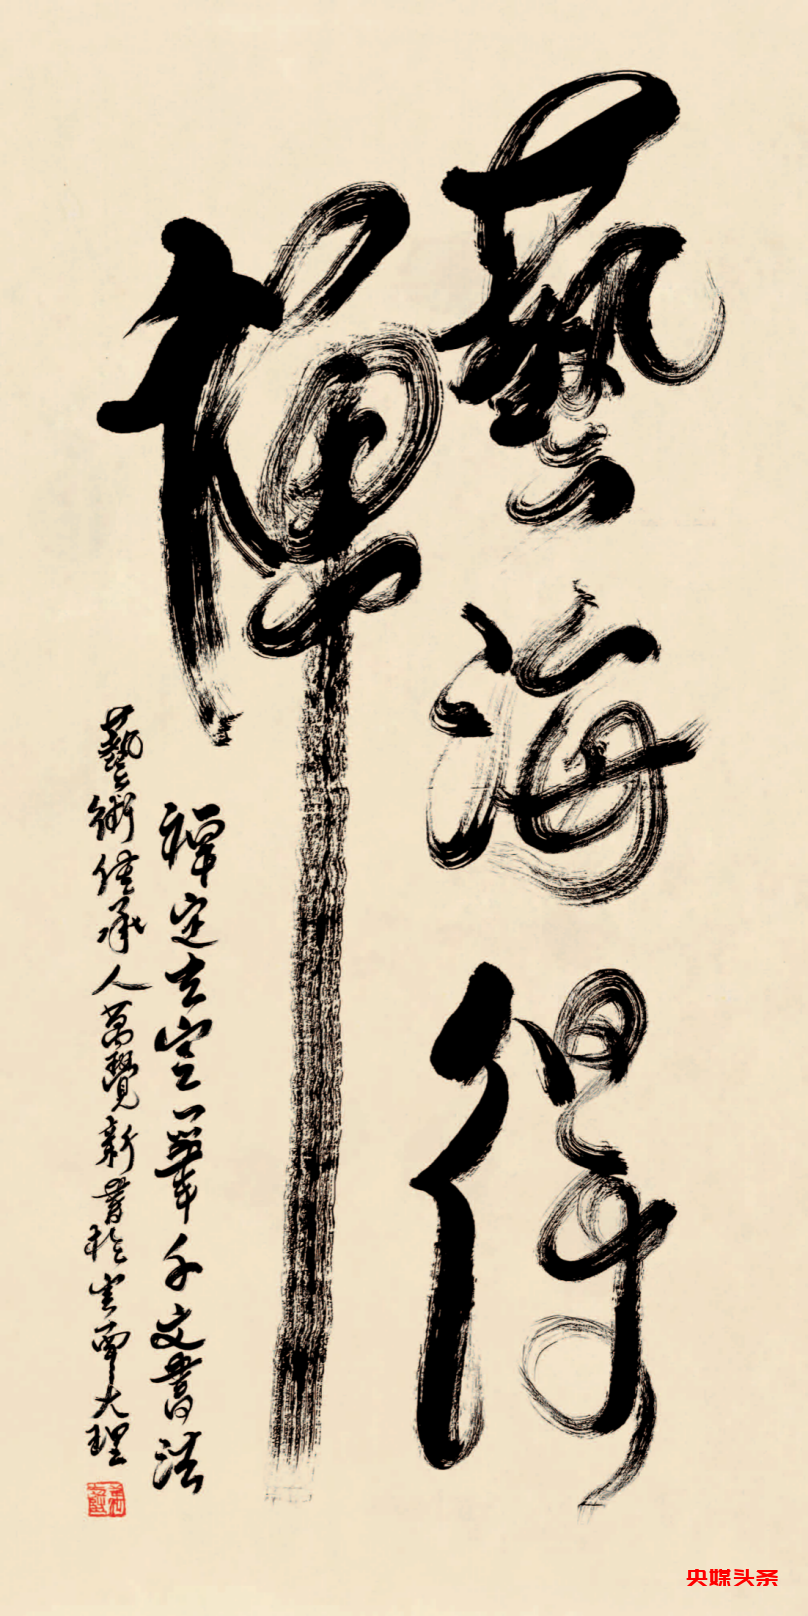 藝海得
禪
禪定去定一筆千文書法
藝術傳承人萬贊新書於雲南大理
央媒头条